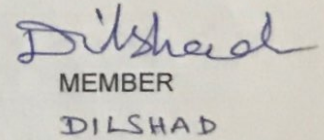 Dilshad
MEMBER
DILSHAD